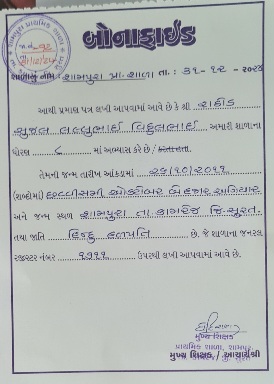 બોનાફાઈડ
શાળાનું નામ: શામપુરા પ્રા.શાળા તા.: ૩૧-૧૨-૨૦૨૪
આથી પ્રમાણ પત્ર લખી આપવામાં આવે છે કે શ્રી રાઠોડ
સુજલ લલ્લુભાઈ વિઠ્ઠલભાઈ અમારી શાળાના
ધોરણ ૮ માં અભ્યાસ કરે છે /
તેમની જન્મ તારીખ આંકડામાં ૨૬/૧૦/૨૦૧૧
(શબ્દોમાં) છવ્વીસમી ઓક્ટોબર બે હજાર અગિયાર
અને જન્મ સ્થળ શામપુરા તા. કામરેજ જિ-સુરત.
તથા જાતિ હિન્દુ હળપતિ છે. જે શાળાના જનરલ
રજીસ્ટર નંબર ૧૭૧૧ ઉપરથી લખી આપવામાં આવે છે.
મુખ્ય શિક્ષક
પ્રાથમિક શાળા, શામપુરા
મુખ્ય શિક્ષક / આચાર્યશ્રી